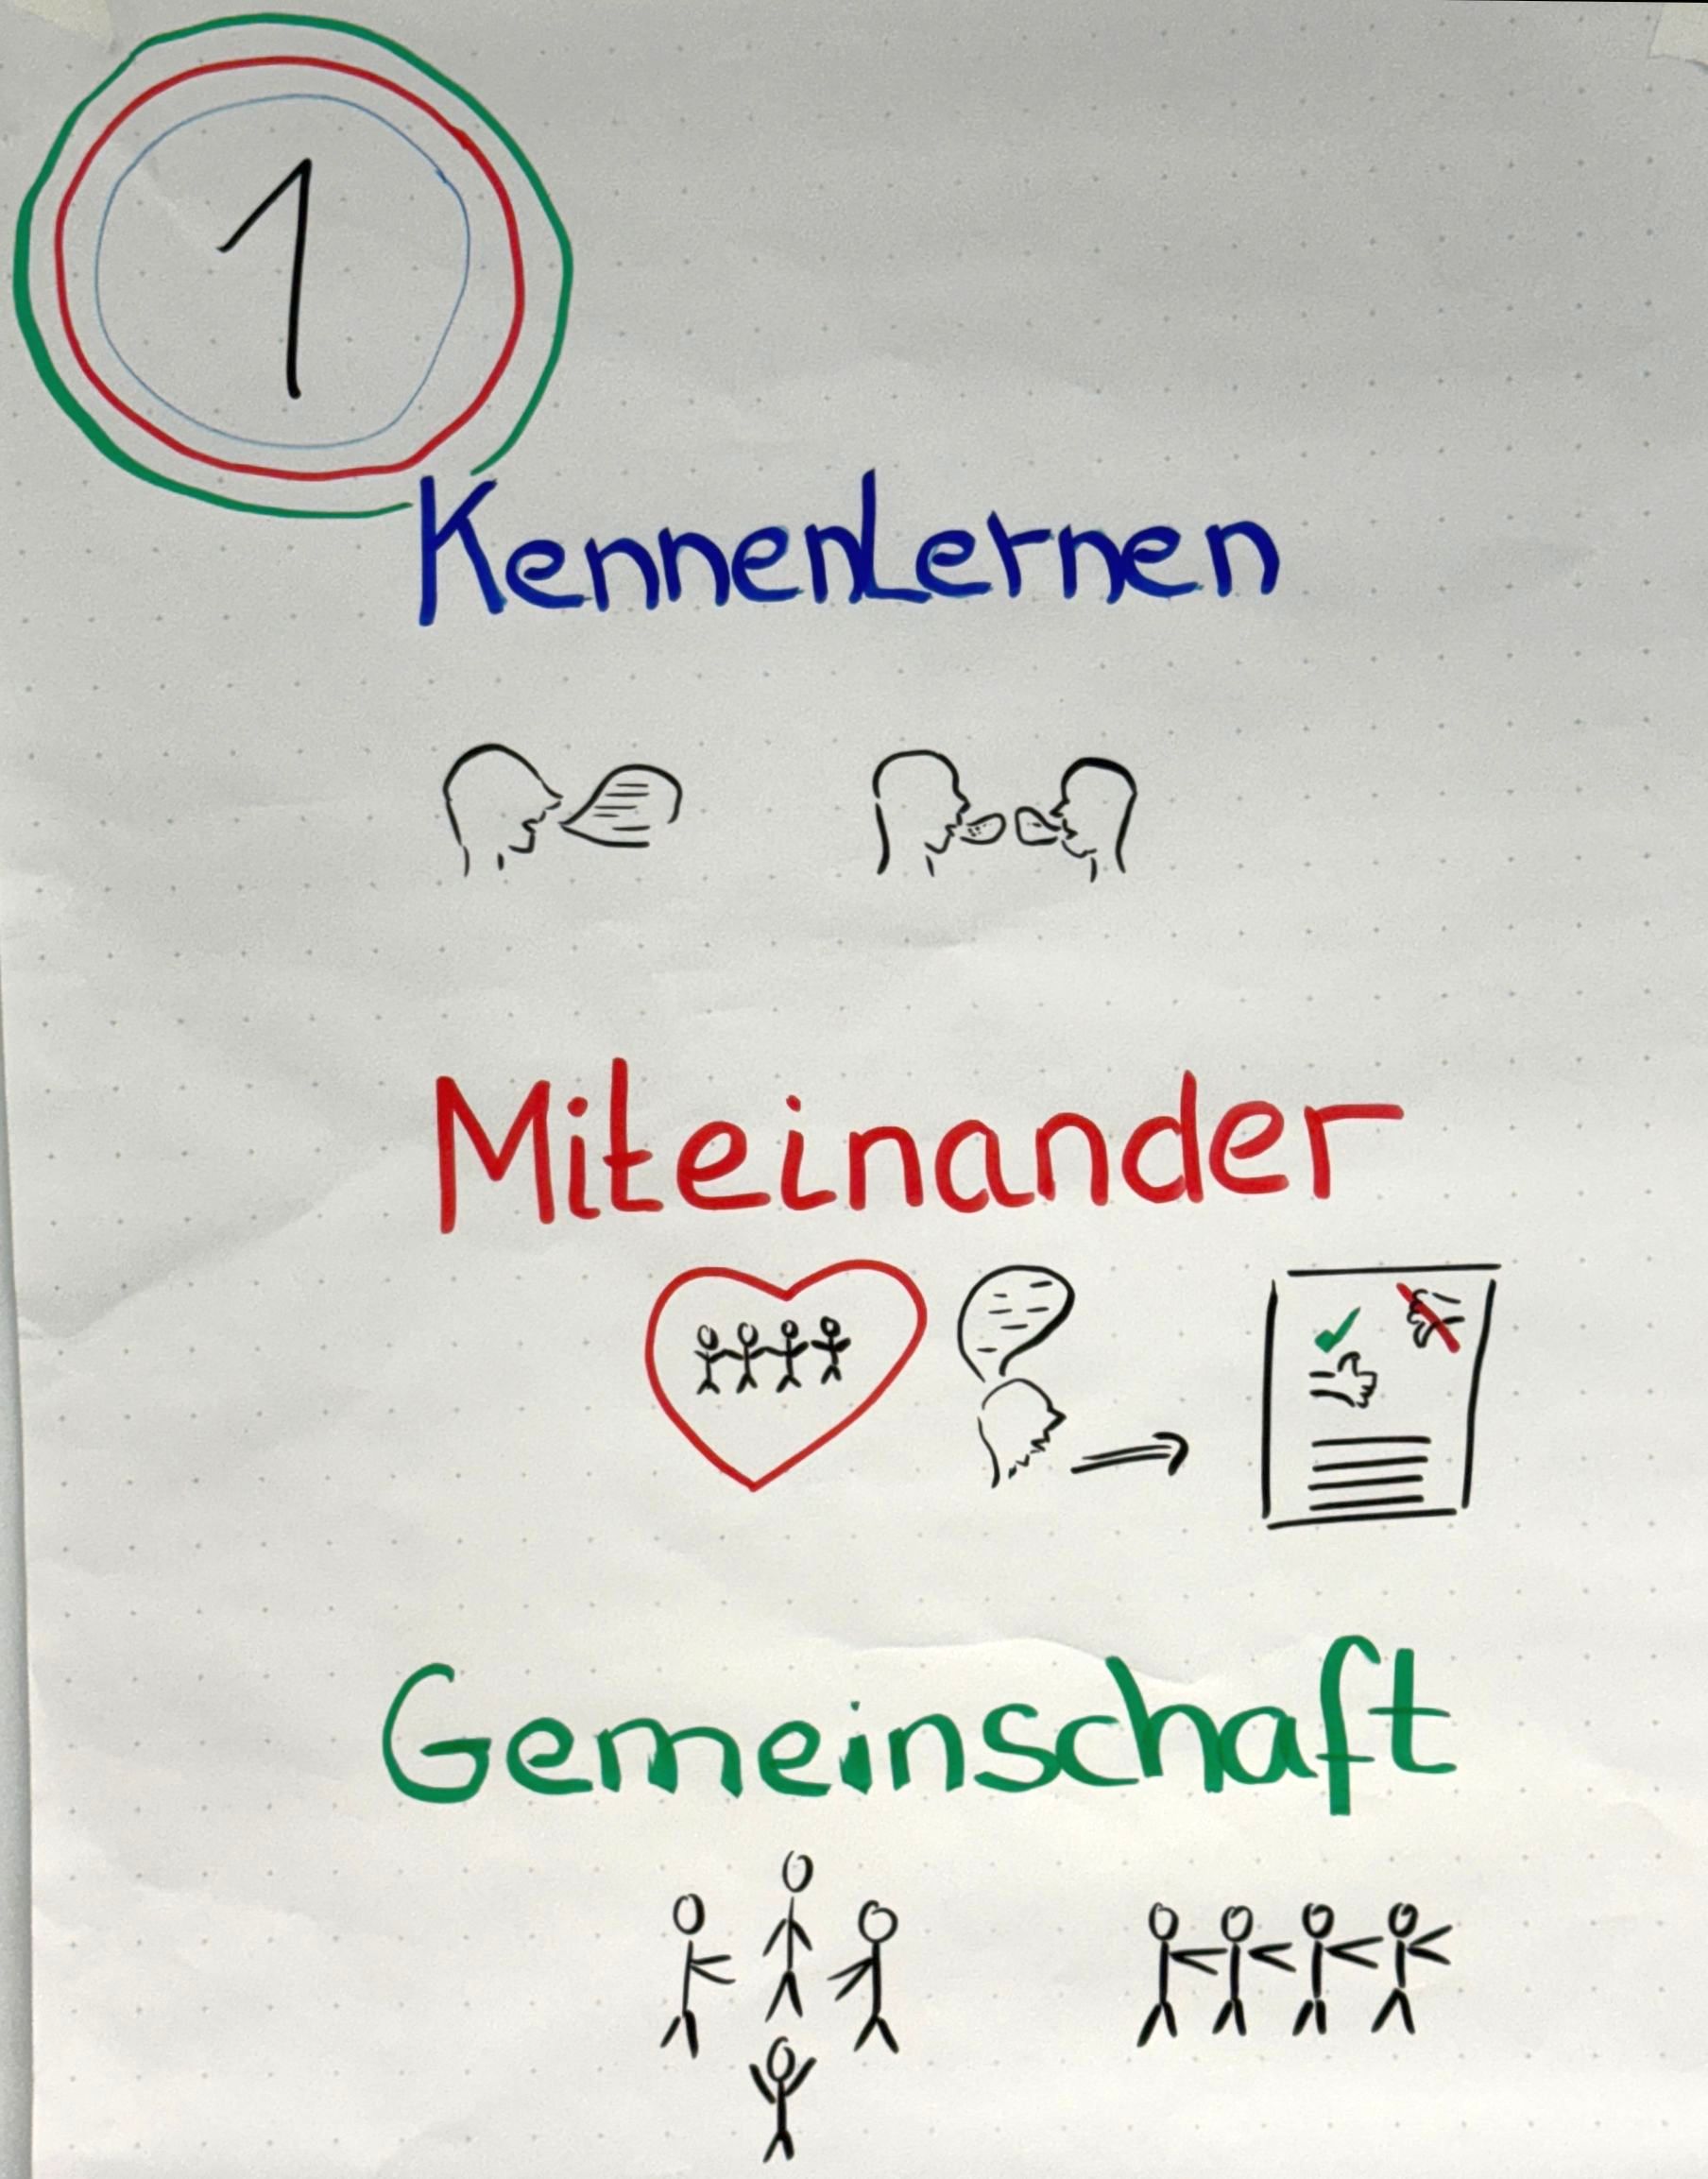 1
KennenLernen
Miteinander
Gemeinschaft